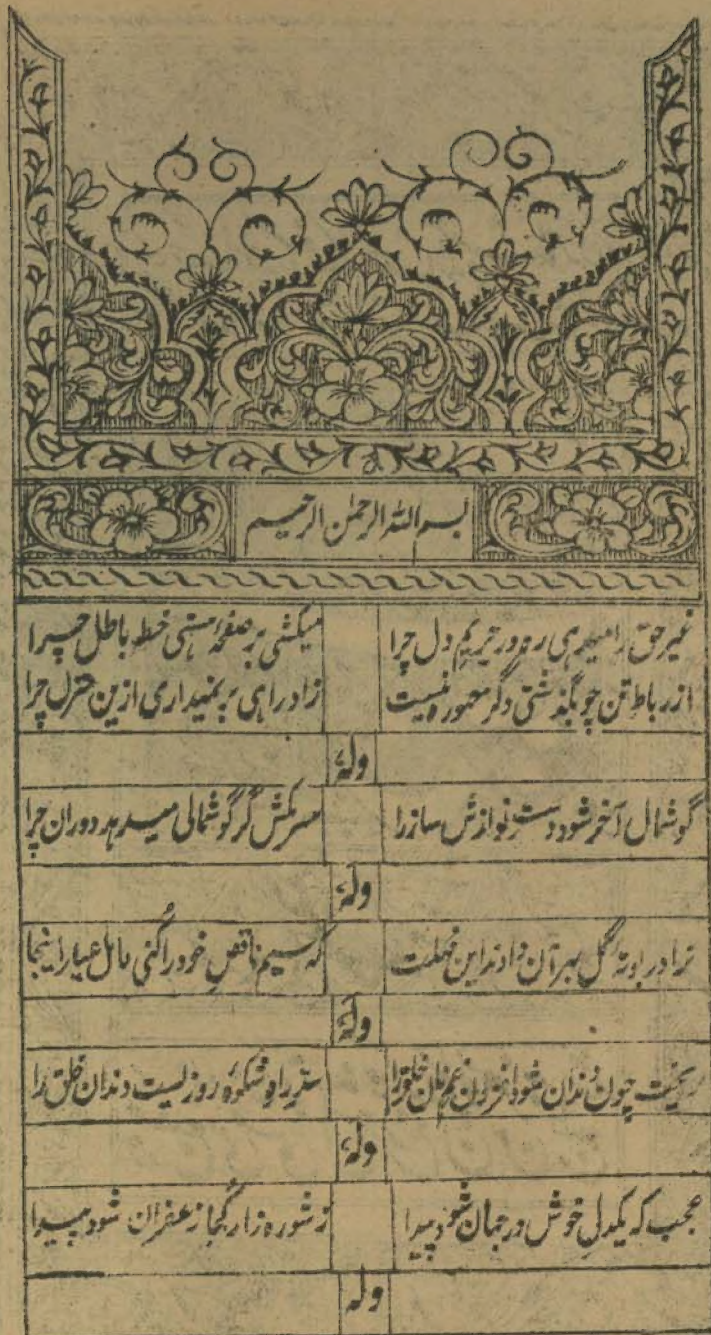 بسم الله الرحمن الرحیم
غیر حق را میدهی ره در حریم دل چرا میکشی بر صفحهٔ هستی خط باطل چرا
از رباط تن چو بگذشتی دگر معموره نیست زاد راهی بر نمیداری ازین منزل چرا
وله
گوشمال آخر شود دست نوازش ساز را سر مکش گر گوشمالی میدهد دوران چرا
وله
ترا در بوتهٔ گل بهر آن دادند این مهلت که سیم ناقص خود را کنی کامل عیار اینجا
وله
ریخت چون دندان شود افزون غم نان خلق را سد راه شکوهٔ روزیست دندان خلق را
وله
عجب که یکدل خوش در جهان شود پیدا ز شوره زار کجا زعفران شود پیدا
وله